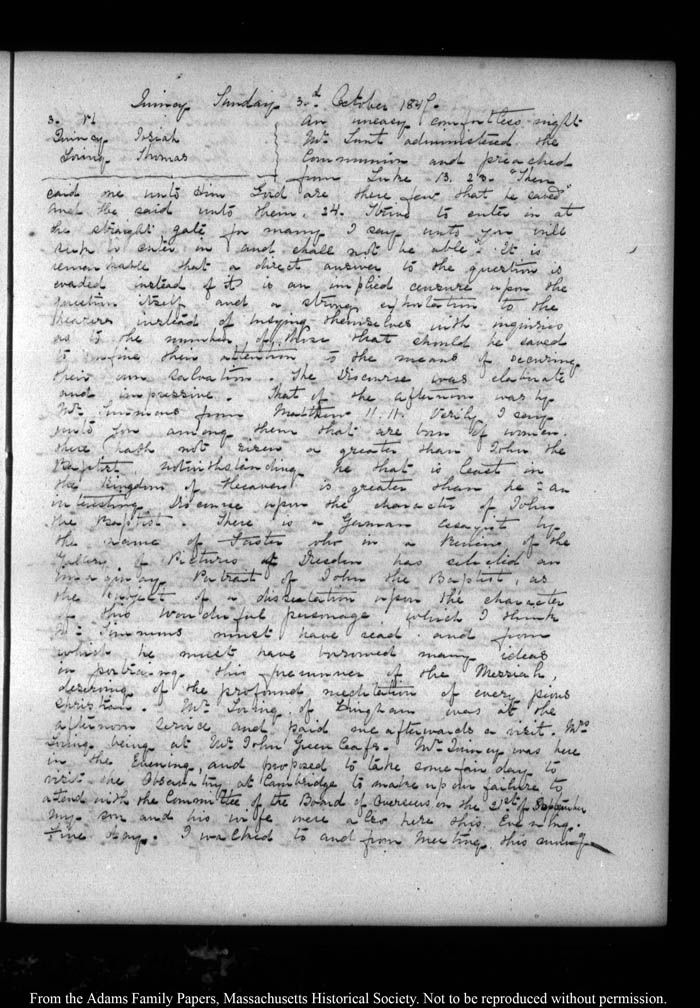 Quincy Sunday 3.d October 1847.
3. VI.
Quincy Josiah
Loring Thomas
An uneasy comfortless night
Mr. Lunt administered the
Communion and preached
from Luke 13. 23. "Then
said one unto him Lord are there few that be saved"
And he said unto them, 24. Strive to enter in at
the straight gate for many I say unto you will
seek to enter in and shall not be able" It is
remarkable that a direct answer to the question is
evaded instead of it is an implied censure upon the
question itself and a strong exhortation to the
hearers instead of busying themselves with inquiries
as to the number of those that should be saved
to confine their attention to the means of securing
their own salvation. The Discourse was elaborate
and impressive. That of the afternoon was by
Mr. Simmons from Matthew 11. 11. Verily I say
unto you among them that are born of women
there hath not risen a greater than John the
Baptist notwithstanding he that is least in
the Kingdom of Heaven is greater than he: an
interesting Discourse upon the character of John
the Baptist. There is a German essayist by
the name of who in a Review of the
Gallery of Pictures at Dresden has selected an
imaginary Portrait of John the Baptist as
the subject of a dissertation upon the character
of this wonderful personage, which I think
Mr. Simmons must have read and from
which he must have borrowed many ideas
in portraying this of the Messiah,
deserving of the profound meditation of every pious
Christian. Mr. Loring of Hingham was at the
afternoon service and paid me afterwards a visit. Mrs.
Loring being at Mr. John Greenleaf's. Mr. Quincy was here
in the Evening, and proposed to take some fair day to
visit the Observatory at Cambridge to make up our failure to
attend with the Committee of the Board of Overseers on the 21st of September
My son and his wife were also here this Evening.
Fine day. I walked to and from Meeting this morning
From the Adams Family Papers, Massachusetts Historical Society. Not to be reproduced without permission.